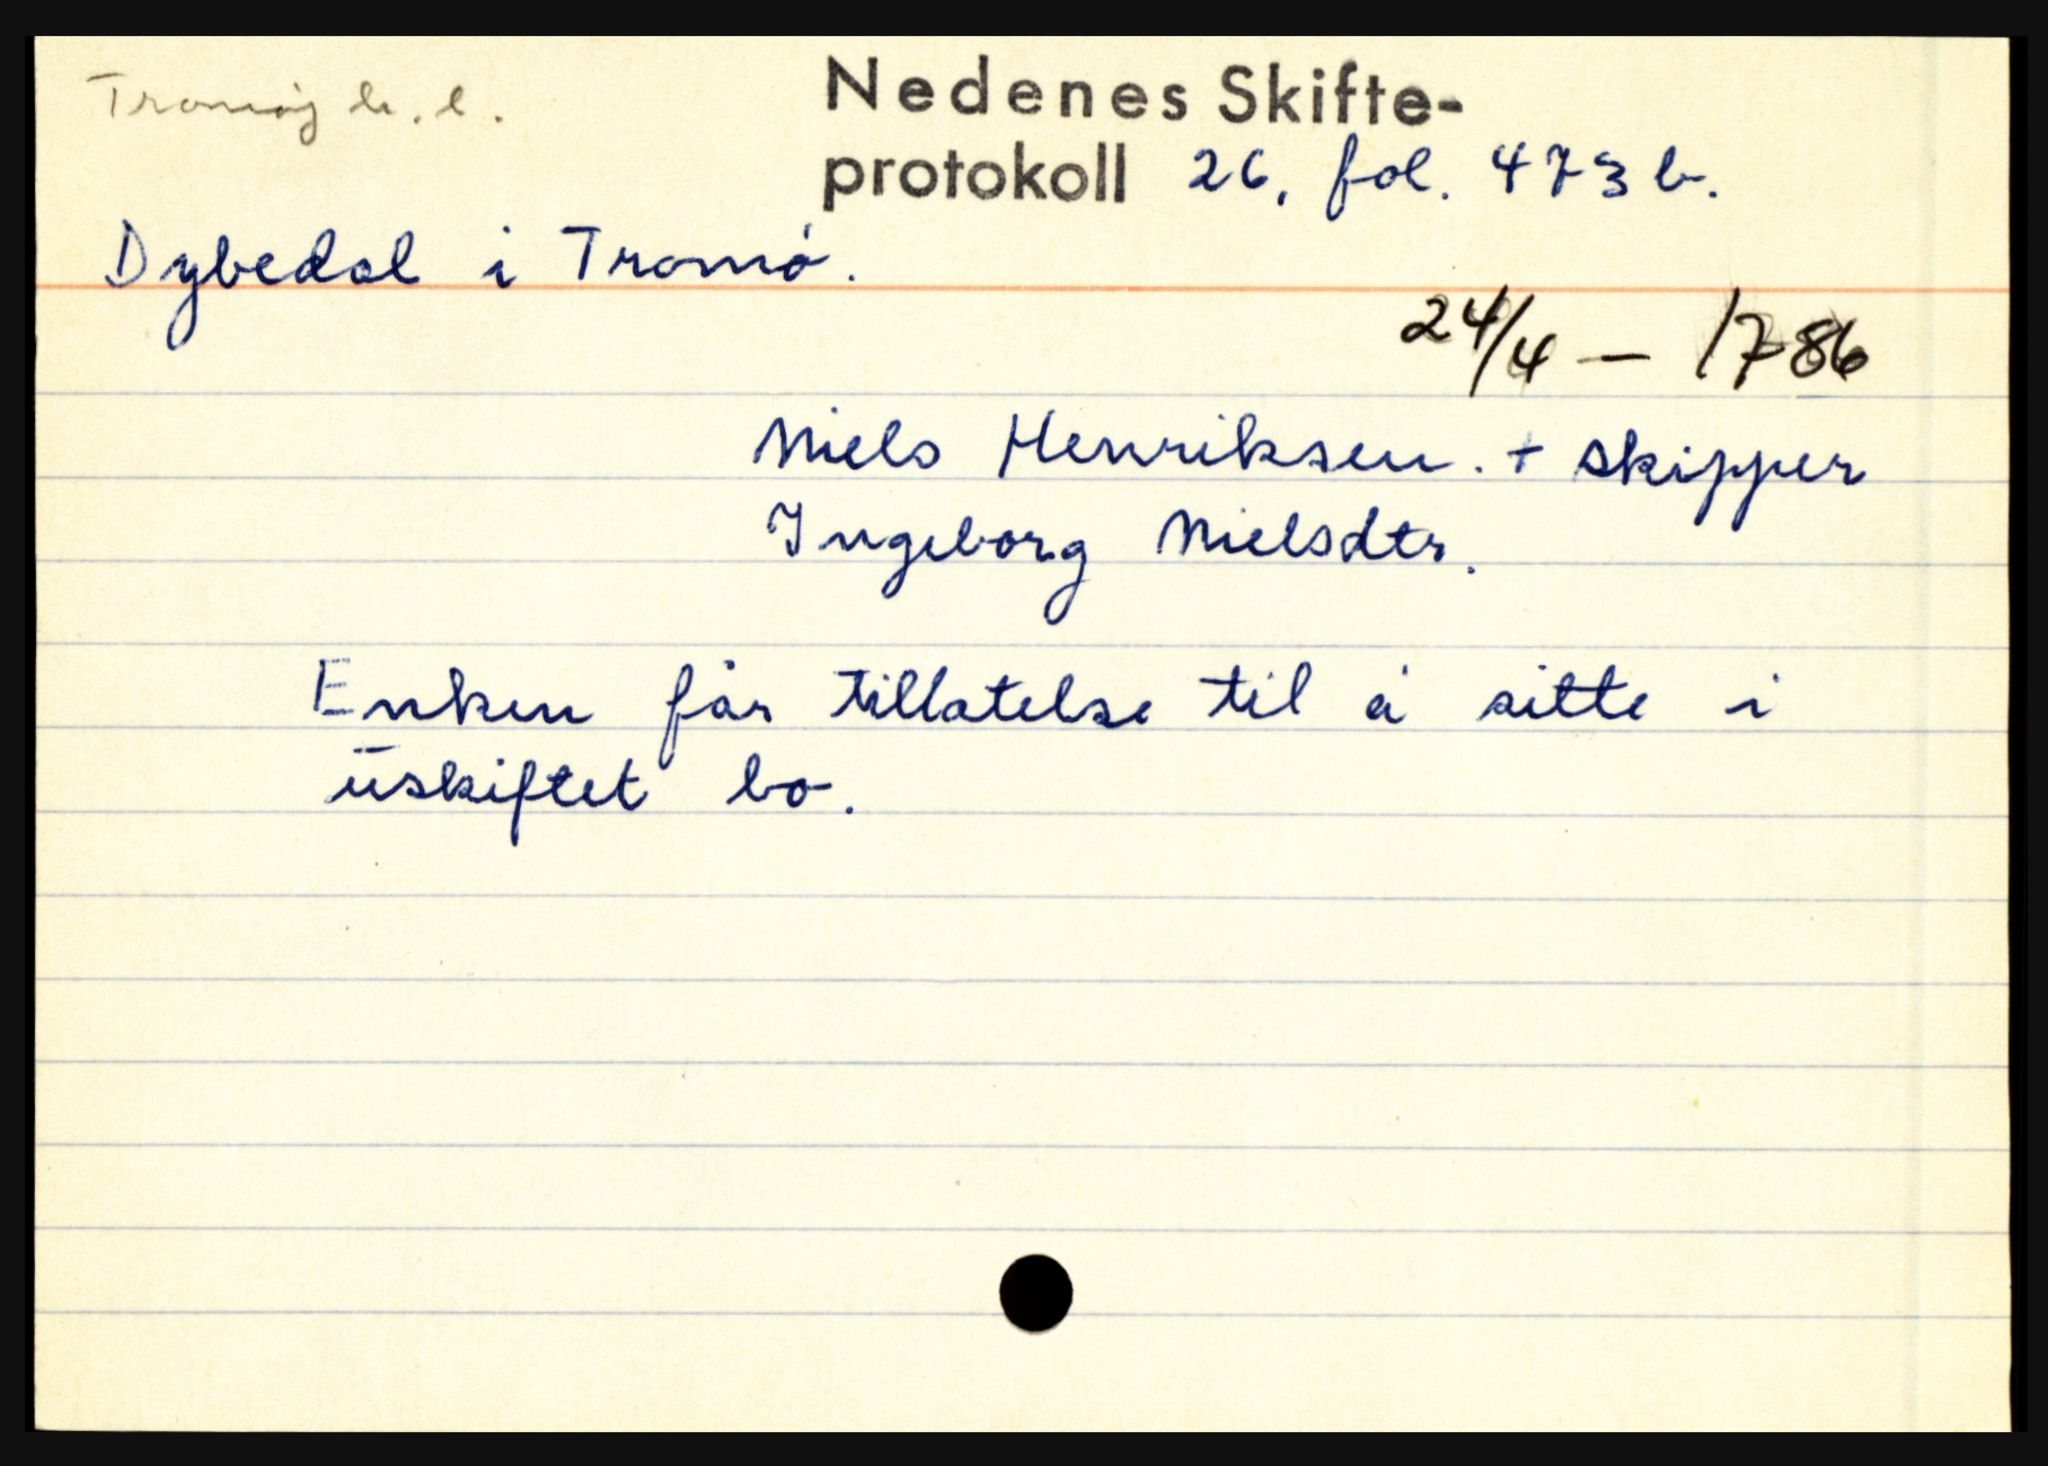 Tromøy h.l.
Nedenes Skifte-
protokoll 26, fol. 473 b.
Dybedal i Tromø.
24/4 - 1786
Niels Henriksen. + skipper
Ingeborg Nielsdtr.
Enken får tillatelse til å sitte i
uskiftet bo.